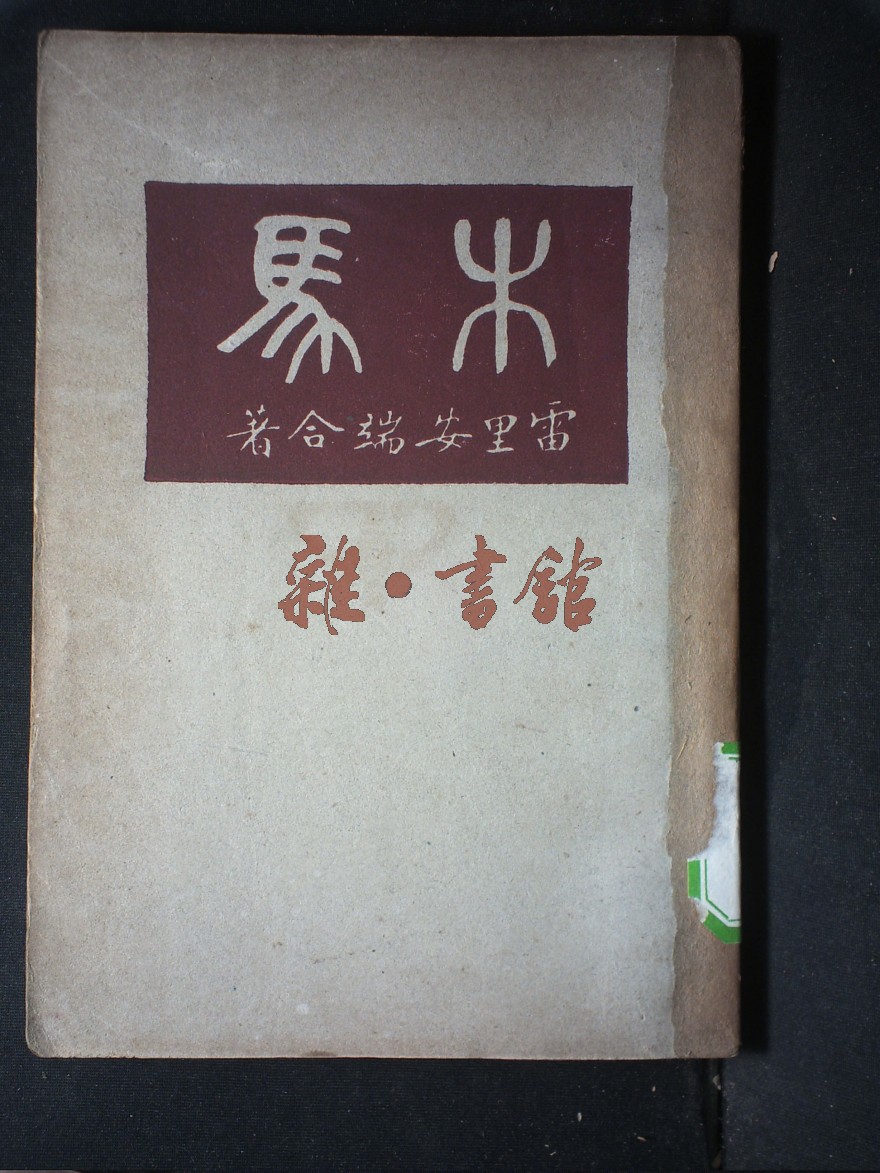 木馬
雷里安端合著
雜•書館